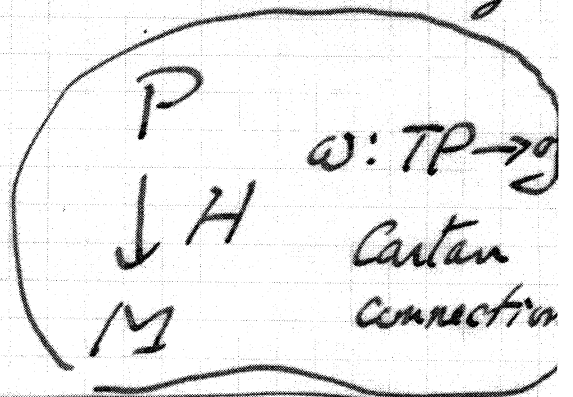 P
ω: TP → g
↓ H
Cartan
M
connection